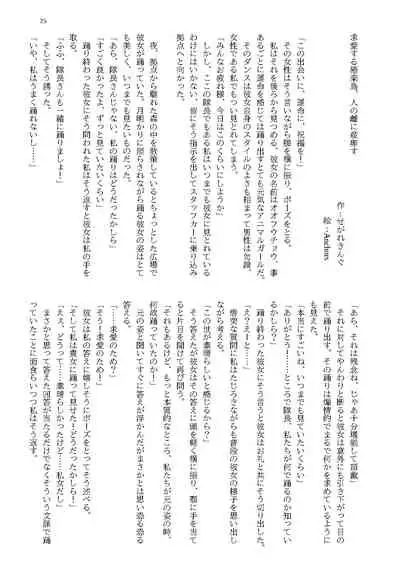 25
求愛する極楽鳥、人の雌に改理す
作:せがれさんぐ
絵:Anchors
「この出会いに、運命に、祝福を!」
その女性はそう言いながら脚を横に振り、ポーズをとる。
私はそれを後ろから見つめる。彼女の名前はオオフウチョウ、事
あるごとに運命を感じては踊り出すとても元気なアニマルガールだ。
そのダンスは彼女自身のスタイルのよさも相まって男性は勿論、
女性である私でもつい見とれてしまう。
「みんなお疲れ様、今日はこのくらいにしようか」
しかし、ここの隊長でもある私はいつまでも彼女に見とれている
わけにはいかない。皆にそう指示を出してスタッフカーに乗り込み
拠点へと向かった。
夜、拠点から離れた森の中を散策しているとちょっとした広場で
彼女が踊っていた。月明かりに照らされながら踊る彼女の姿はとて
も美しく、いつまでも見たいものだった。
「あら、隊長さんじゃない、私の踊りはどうだったかしら」
「すごく良かったよ、ずっと見ていたいくらい」
踊り終わった彼女にそう問われた私はそう返すと彼女は私の手を
「ふふ、隊長さんも一緒に踊りましょ!」
そしてそう誘った。
「いや、私はうまく踊れないし……」
「あら、それは残念ね、じゃあ十分堪能して頂戴」
それに対してやんわりと断ると彼女は意外にも引き下がって目の
前で踊り出す。その踊りは煽情的でまるで何かを求めているように
も見えた。
「本当にすごいね、いつまでも見ていたいくらい」
「ありがとう!……ところで隊長、私たちが何で踊るのか知ってい
るかしら?」
踊り終わった彼女がそう言うと彼女はお礼と共にそう切り出した。
「え?えーと……」
唐突な質問に私はたじろぎながらも普段の彼女の様子を思い出し
ながら考える。
「この世が素晴らしいと感じるから?」
そう答えたが彼女はその答えに頭を軽く横に振り、顎に手を当て
ると片目を開けて再び問う。
「それもあるけど、もっと本質的なところ、私たちが元の姿の時、
何故踊っていたのか!」
元の姿と聞いてすぐに答えが浮かんだがまさかとは思い恐る恐る
答える。
「……求愛のため?」
「そう!求愛のため!」
彼女は私の答えに嬉しそうにポーズをとってそう述べる。
「そして私は貴女に踊って見せた!どうだったかしら!」
「えぇ、どうって……素晴らしかったけど……私女だし」
まさかと思って答えた回答が当たるだけでなくそういう文脈で踊
っていたことに面食らいつつ私はそう返す。